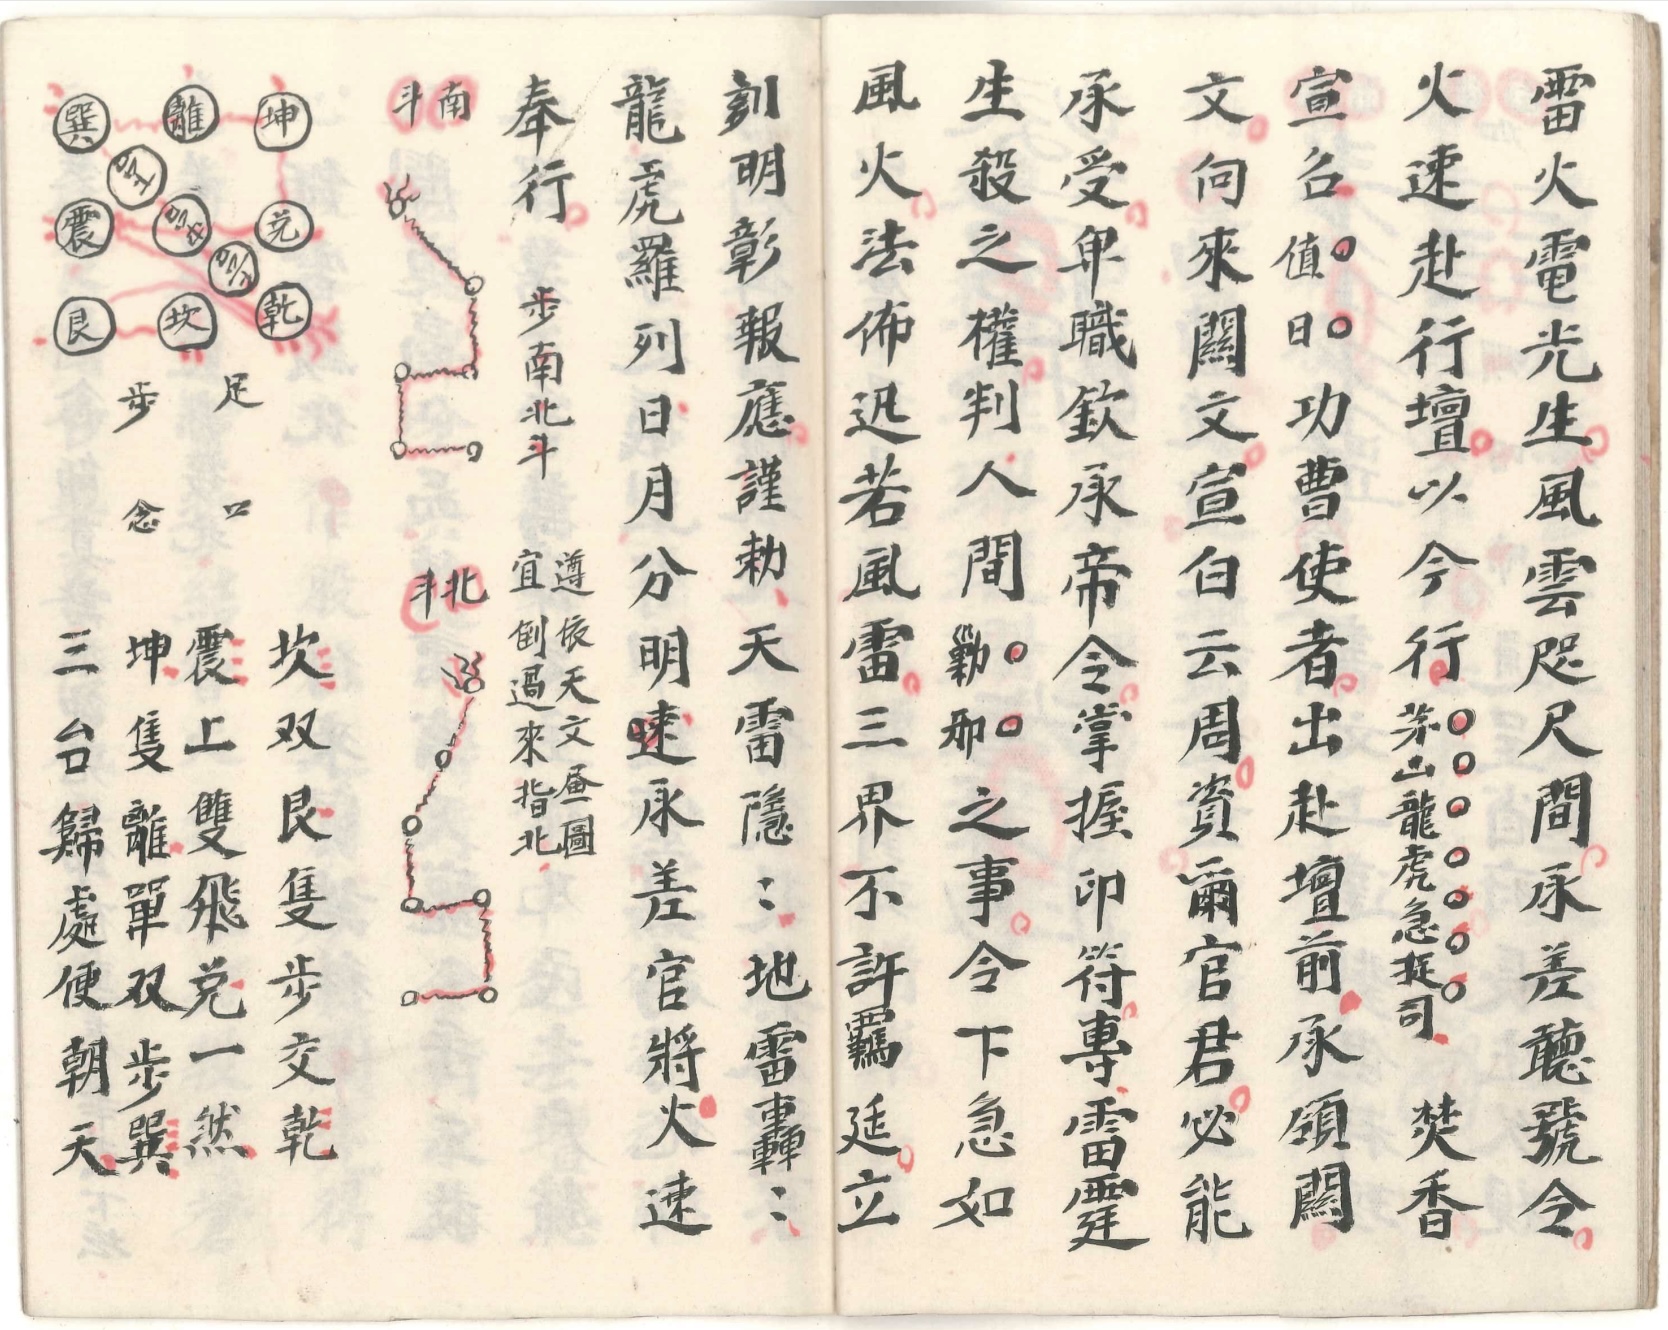 雷火電光生風雲咫尺間承差聽號令
火速赴行壇以今行茅山龍虎急捉司焚香
宣名值日功曹使者出赴壇前承領關
文向來關文宣白云周資爾官君必能
承受卑職欽承帝令掌握印符專雷霆
生殺之權判人間勦邪之事令下急如
風火法佈迅若風雷三界不許羈延立
刻明彰報應謹勅天雷隱：地雷轟：
龍虎羅列日月分明速承差官將火速
奉行
步南北斗
遵依天文昼圖
宜倒過來指北
南斗
北斗
坤
離
巽
兌
震
乾
坎
艮
足步
口念
坎双艮隻步交乾
震上雙飛兌一然
坤隻離單双步巽
三台歸處便朝天